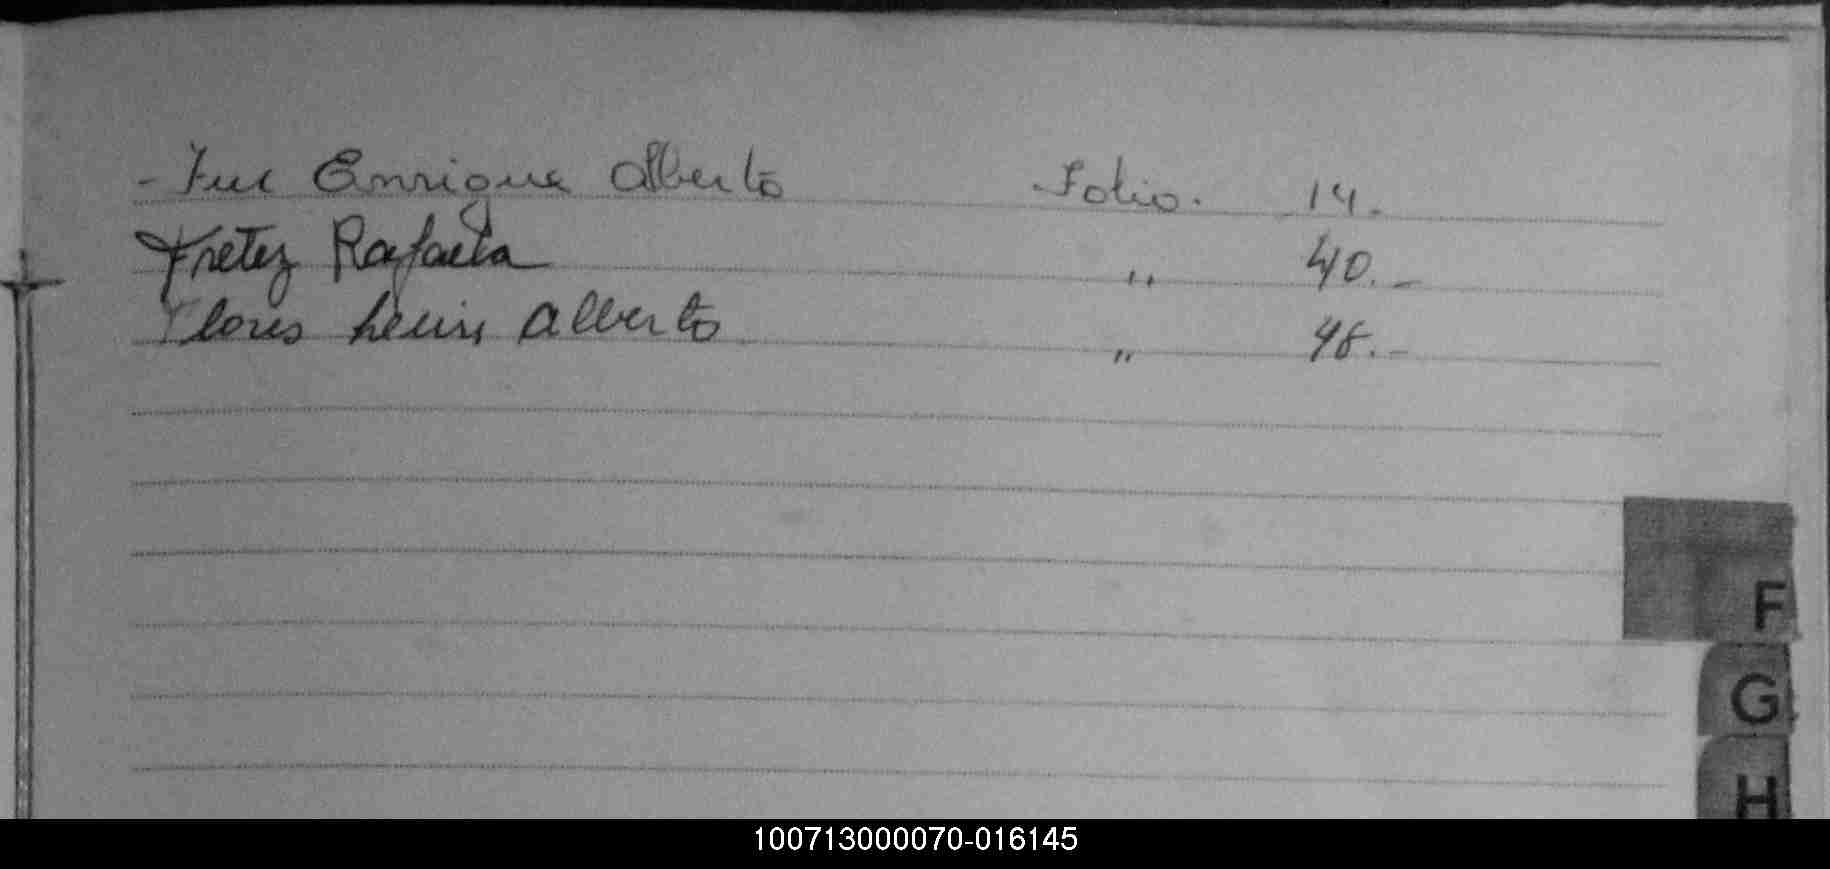 - Fue Enrique Alberto Folio. 14.
Fretez Rafaela " 40.-
Flores Luis Alberto " 48.-
F
G
H
100713000070-016145